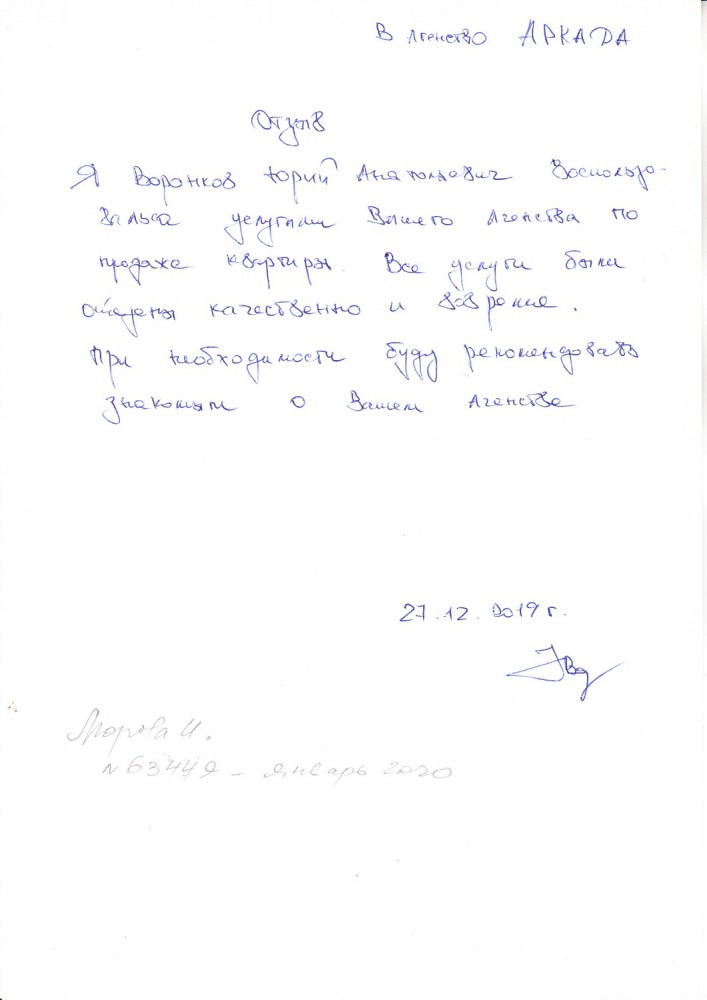 В Агенство АРКАДА
Отзыв
Я Воронков Юрий Анатольевич Воспользо-
вался услугами Вашего Агенства по
продаже квартиры. Все услуги были
качественно и вовремя.
При необходимости буду рекомендовать
знакомым о Вашем Агенстве
27.12.2019 г.
И.
№ 63449 - январь 2020